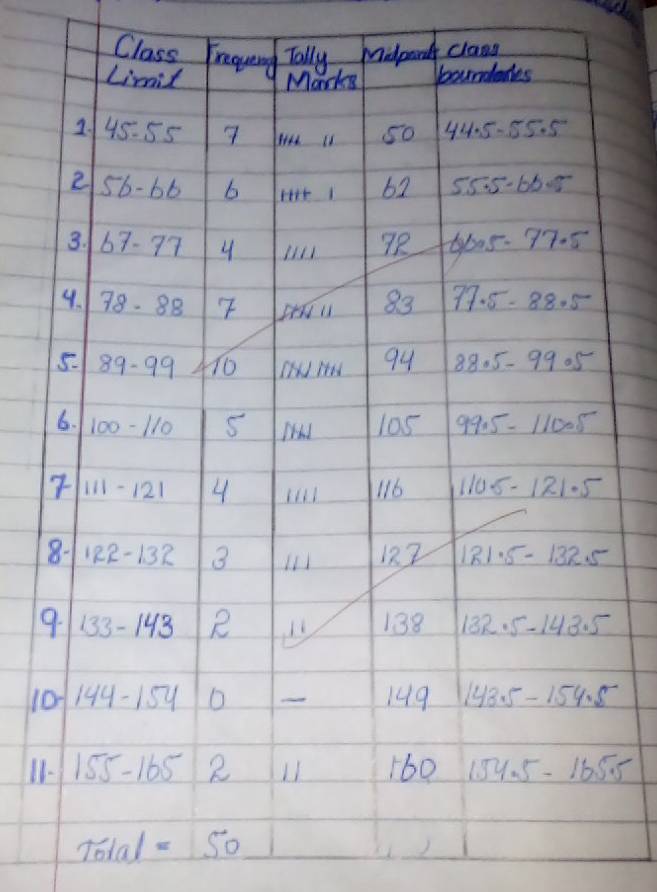 Class Limit Frequency Tally Marks Midpoint Class boundaries
1. 45-55 7 𝍸 || 50 44.5-55.5
2 56-66 6 𝍸 | 62 55.5-66.5
3. 67-77 4 |||| 72 66.5-77.5
4. 78-88 7 𝍸 || 83 77.5-88.5
5- 89-99 10 𝍸 𝍸 94 88.5-99.5
6. 100-110 5 𝍸 105 99.5-110.5
7 111-121 4 |||| 116 110.5-121.5
8- 122-132 3 ||| 127 121.5-132.5
9- 133-143 2 || 138 132.5-143.5
10- 144-154 0 — 149 143.5-154.5
11- 155-165 2 || 160 154.5-165.5
Total = 50